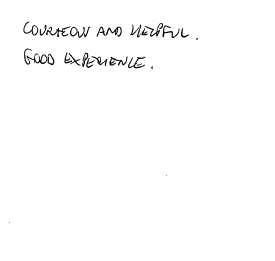 COURTEOUS AND HELPFUL.
GOOD EXPERIENCE.